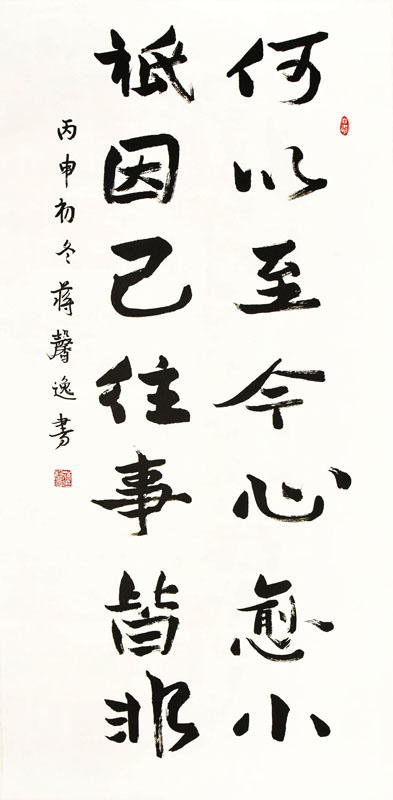 何以至今心愈小
祗因已往事皆非
丙申初冬蒋馨逸書